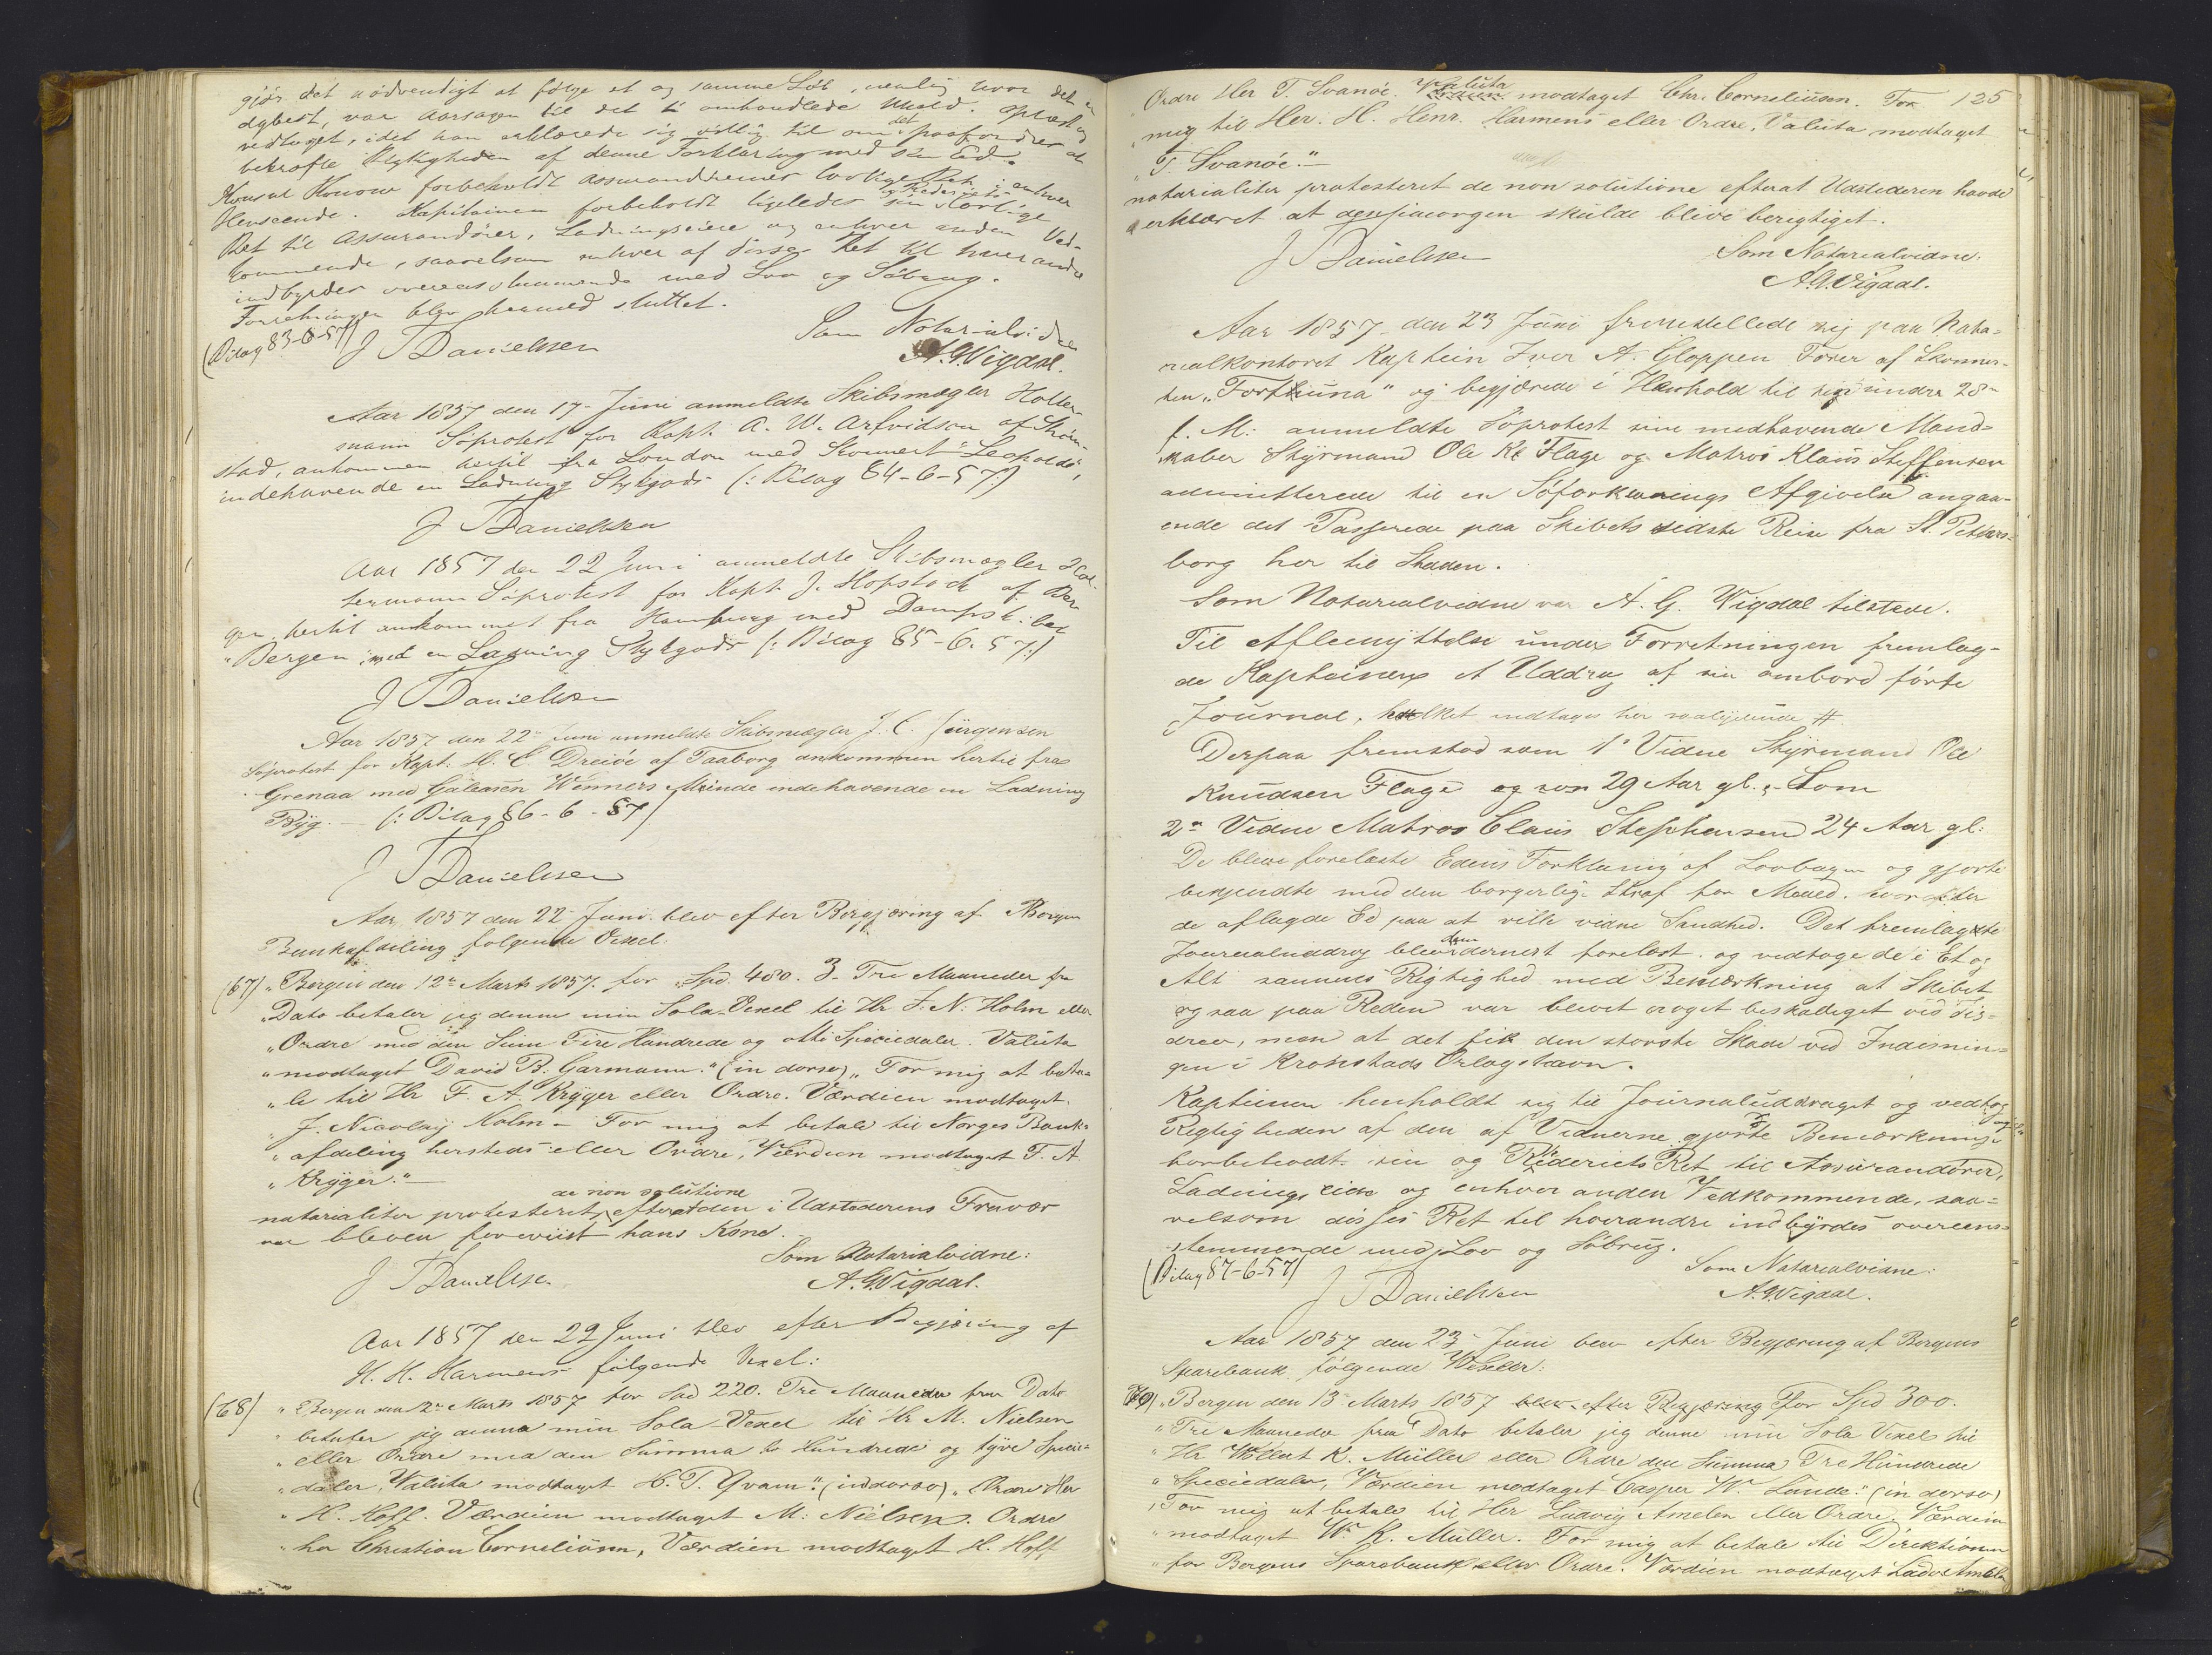 gjør det nødvendigt at følge et og samme Løb, nemlig hvor det er
dybest, var Aarsagen til det omhandlede Uheld. Oplæst og
vedtaget, idet han erklærede sig villig til om det paafordres at
bekræfte Rigtigheden af denne Forklaring med sin Eed.
Konsul Konow forbeholdt Assurandeurernes lovlige Ret i enhver
Henseende. Kapitainen forbeholdt ligeledes sin og Rederiets lovlige
Ret til Assurandører, Ladningseiere og enhver anden Ved-
kommende, saavelsom enhver af disses Ret til hverandre
indbyrdes overensstemmende med Lov og Søbrug.
Forretningen blev hermed sluttet.
(Bilag 83-6-57)
J Danielssen
Som Notarialvidne
A. G. Wigdal.
Aar 1857 den 17- Juni anmeldte Skibsmægler Holter-
mann Søprotest for Kapt. A. W. Arfvidson af Strøm-
stad, ankommen hertil fra London med Skonnert "Leopold",
indehavende en Ladning Stykgods (: Bilag 84-6-57:)
J Danielssen
Aar 1857 den 22 Juni anmeldte Skibsmægler Hol-
termann Søprotest for Kapt. J. Hopstock af Ber
gen hertil ankommet fra Hamburg med Dampskibet
"Bergen" med en Ladning Stykgods (: Bilag 85-6.57:)
J Danielssen
Aar 1857 den 22n Juni anmeldte Skibsmægler J. C. Jürgensen
Søprotest for Kapt. H. C. Dreiøe af Faaborg ankommen hertil fra
Grenaa med Galeasen Wenners Minde indehavende en Ladning
Byg. — (: Bilag 86-6-57)
J Danielssen
Aar 1857 den 22- Juni blev efter Begjæring af Bergens
Bankafdeling følgende Vexel:
(67) "Bergen den 12n Marts 1857. for Spd. 480. 3. Tre Maaneder fra
"Dato betaler jeg denne min Sola-Vexel til Hr J. N. Holm eller
"Ordre med den Sum Fire Hundrede og otti Speciedaler. Valuta
"modtaget David B. Garmann." (in dorso) "For mig at beta-
"le til Hr F. A. Krÿger eller Ordre. Værdien modtaget.
"J. Nicolaÿ Holm - For mig at betale til Norges Bank-
"afdeling hersteds eller Ordre, Værdien modtaget F. A
"Krÿger."—
notarialiter protesteret de non solutione efterat den i Udstederens Fravær
var bleven foreviist hans Kone.
J Danielssen
Som Notarialvidne:
A. G. Wigdal.
Aar 1857 den 22 Juni blev efter Begjæring af
H. H. Harmens følgende Vexel:
(68) "Bergen den 2n Marts 1857 for Spd 220. Tre Maaneder fra Dato
"betaler jeg denne min Sola-Vexel til Hr M. Nielsen
"eller Ordre med den Summa to Hundrede og tyve Specie-
"daler, Valuta modtaget C. T. Qvam." (in dorso) "Ordre Her
"H. Hoff. Værdien modtaget M. Nielsen. Ordre
"hr Christian Corneliusen, Værdien modtaget H. Hoff
125
Ordre Her T. Svanøe. Valuta modtaget Chr. Corneliusen. For
"mig til Her. H. Henr. Harmens eller Ordre, Valuta modtaget
"T. Svanøe."—
notarialiter protesteret de non solutione efterat Udstederen havde
erklæret at desfiacorgen skulde blive berigtiget.
J Danielssen
Som Notarialvidne.
A. G. Wigdal.
Aar 1857 den 23 Juni fremstillede sig paa Nota-
rialkontoret Kaptein Iver A. Gloppen Fører af Skonner-
ten "Forthuna" og begjærede i Henhold til under 28n
f. M. anmeldte Søprotest sine medhavende Mand-
skaber Styrmand Ole K. Flage og Matros Klaus Steffensen
admitterede til en Søforklarings Afgivelse angaa-
ende det Passerede paa Skibets sidste Reise fra St. Peters-
borg her til Staden.
Som Notarialvidne var A. G. Wigdal tilstede.
Til Aflednyttelse under Forretningen fremlag-
de Kapteinen et Uddrag af sin ombord førte
Journal, hvilket indtages her saalydende #
Derpaa fremstod som 1e Vidne Styrmand Ole
Knudsen Flage og var 29 Aar gl. - Som
2n Vidne Matros Claus Stephensen 24 Aar gl.
De bleve forelæste Edens Forklaring af Lovbogen og gjorte
bekjendte med den borgerlige Straf for Mened. hvorefter
de aflagde Ed paa at ville vidne Sandhed. Det fremlagte
Journaluddrag blev dem dernest forelæst og vedtoge de i Et og
Alt sammes Rigtighed med Bemærkning at Skibet
ogsaa paa Reden var blevet noget beskadiget ved Iis-
drev, men at det fik den største Skade ved Indisnin-
gen i Kronstads Orlogshavn.
Kapteinen henholdt sig til Journaluddraget og vedtog
Rigtigheden af den af Vidnerne gjorte Bemærkning og
forbeholdt sin og Rederiets Ret til Assurandører,
Ladningseiere og enhver anden Vedkommende, saa-
velsom disses Ret til hverandre indbÿrdes overeens-
stemmende med Lov og Søbrug.
(Bilag 87-6-57)
J Danielssen
Som Notarialvidne:
A. G. Wigdal.
Aar 1857 den 23- Juni blev efter Begjæring af Bergens
Sparebank følgende Vexler:
(69) "Bergen den 13n Marts 1857 blev efter Begjæring For Spd 300.
"Tre Maaneder fra Dato betaler jeg denne min Sola Vexel til
"Hr Wollert K. Müller eller Ordre den Summa Tre Hundrede
"Speciedaler, Værdien modtaget Casper W. Lunde." (in dorso)
"For mig at betale til Her Ludvig Amelen eller Ordre. Værdien
"modtaget W. K. Müller. For mig at betale til Direktionen
"for Bergens Sparebank eller Ordre. Værdien modtaget Ludv Amelen